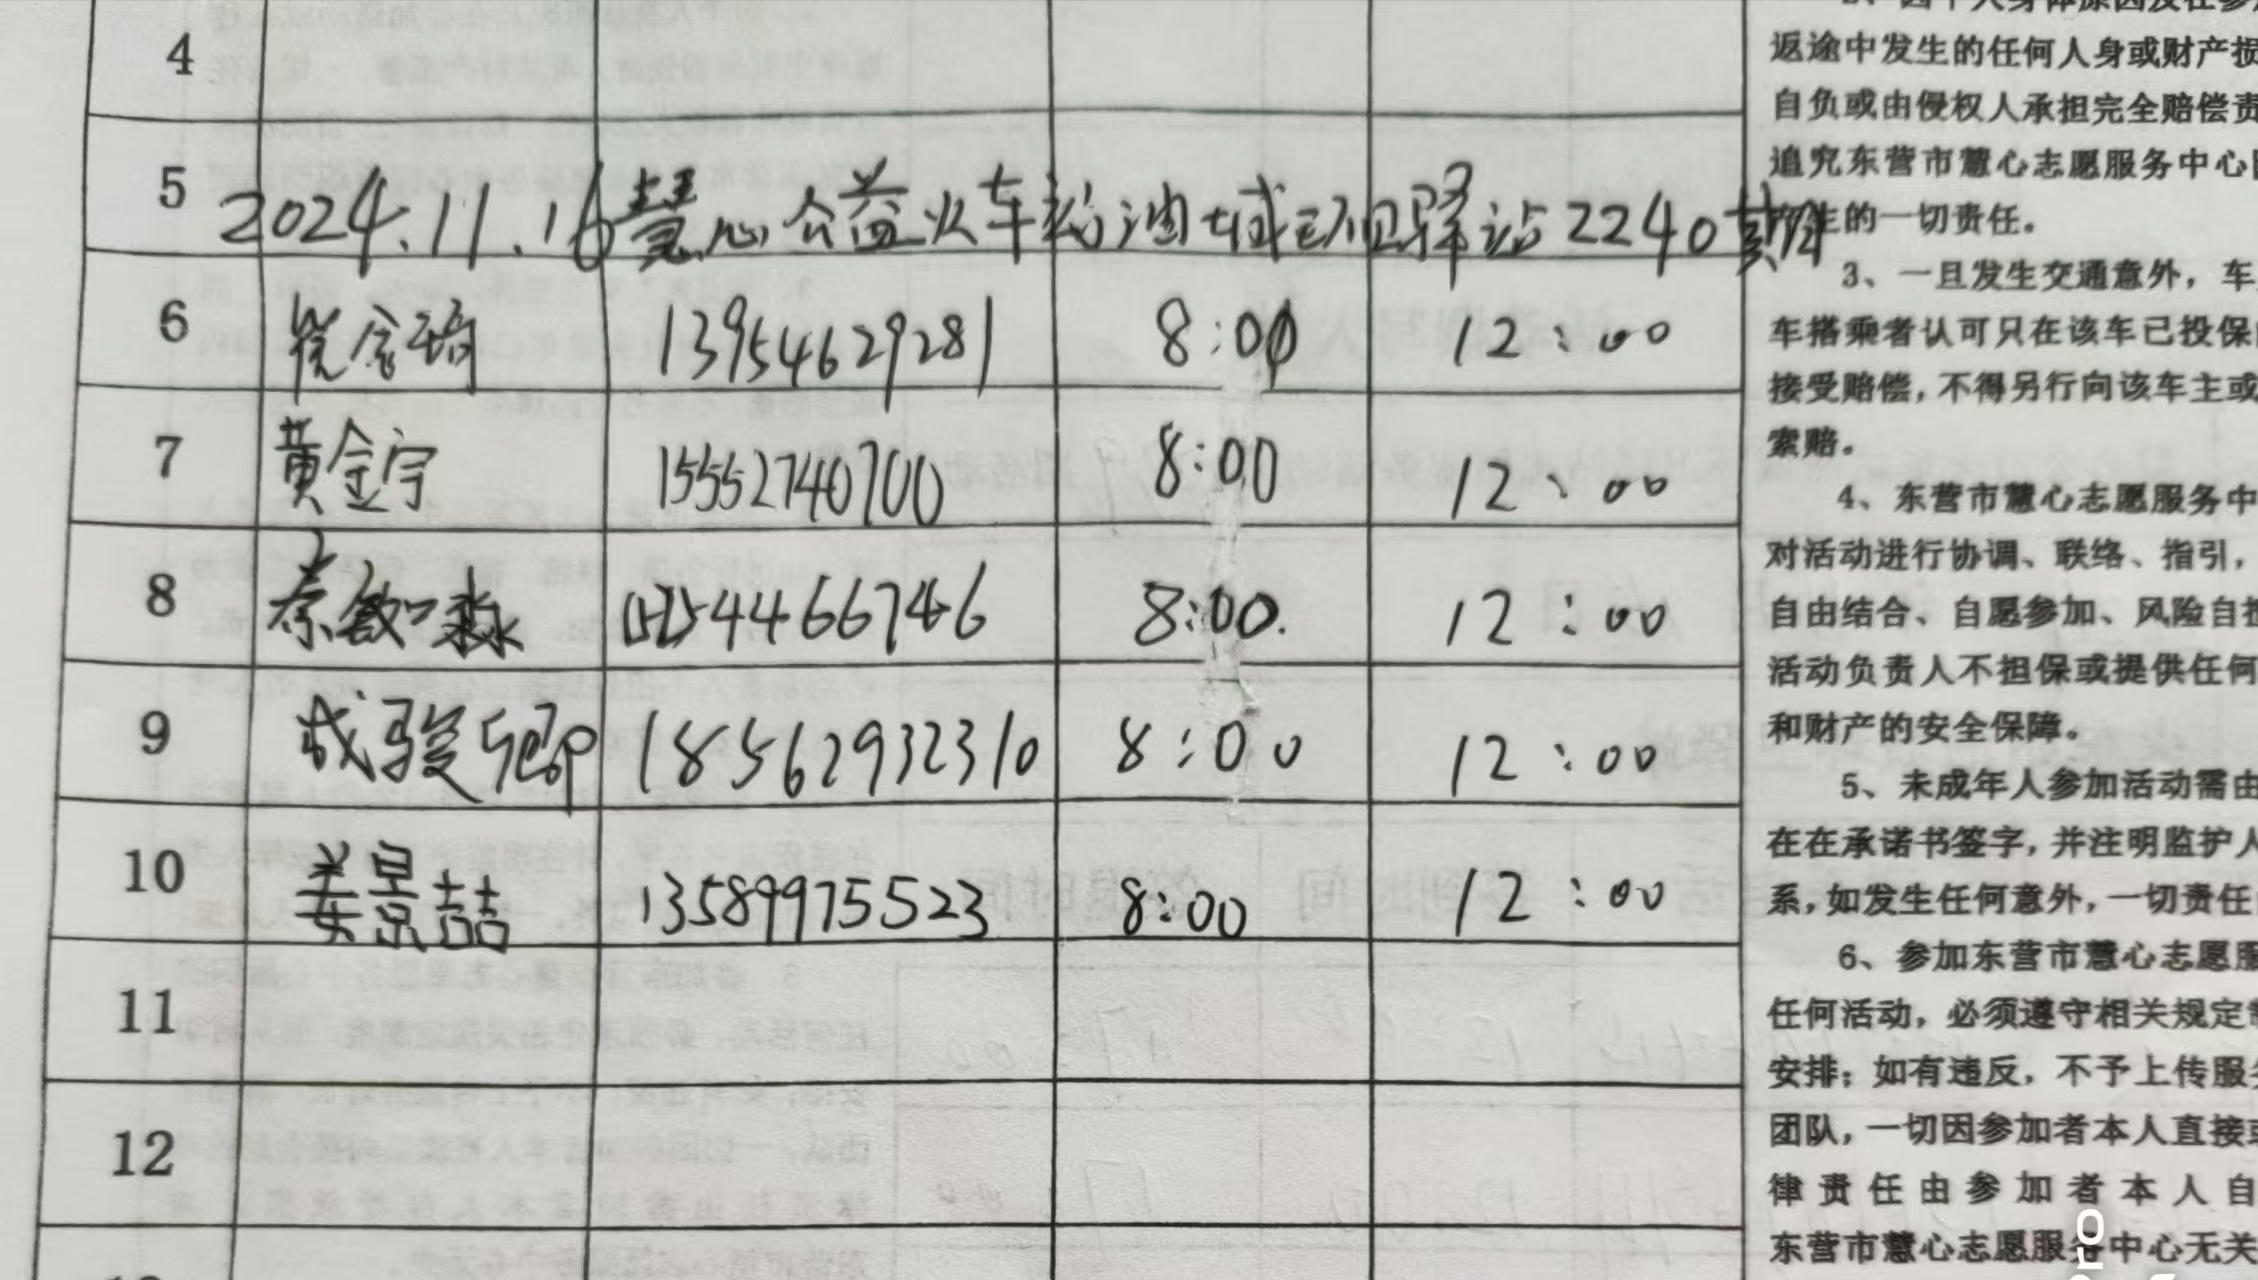 4
5 2024.11.16慧心公益火车站油城环卫驿站2240黄
6 13954629281 8:00 12:00
7 黄金宇 15552740700 8:00 12:00
8 8:00. 12:00
9 成骏卿 18562932310 8:00 12:00
10 姜景喆 13589975523 8:00 12:00
11
12
返途中发生的任何人身或财产损
自负或由侵权人承担完全赔偿责
追究东营市慧心志愿服务中心
生的一切责任。
3、一旦发生交通意外，车
车搭乘者认可只在该车已投保
接受赔偿，不得另行向该车主或
索赔。
4、东营市慧心志愿服务中
对活动进行协调、联络、指引，
自由结合、自愿参加、风险自担
活动负责人不担保或提供任何
和财产的安全保障。
5、未成年人参加活动需由
在在承诺书签字，并注明监护人
系，如发生任何意外，一切责任
6、参加东营市慧心志愿服
任何活动，必须遵守相关规定
安排；如有违反，不予上传服务
团队，一切因参加者本人直接或
律责任由参加者本人自
东营市慧心志愿服务中心无关